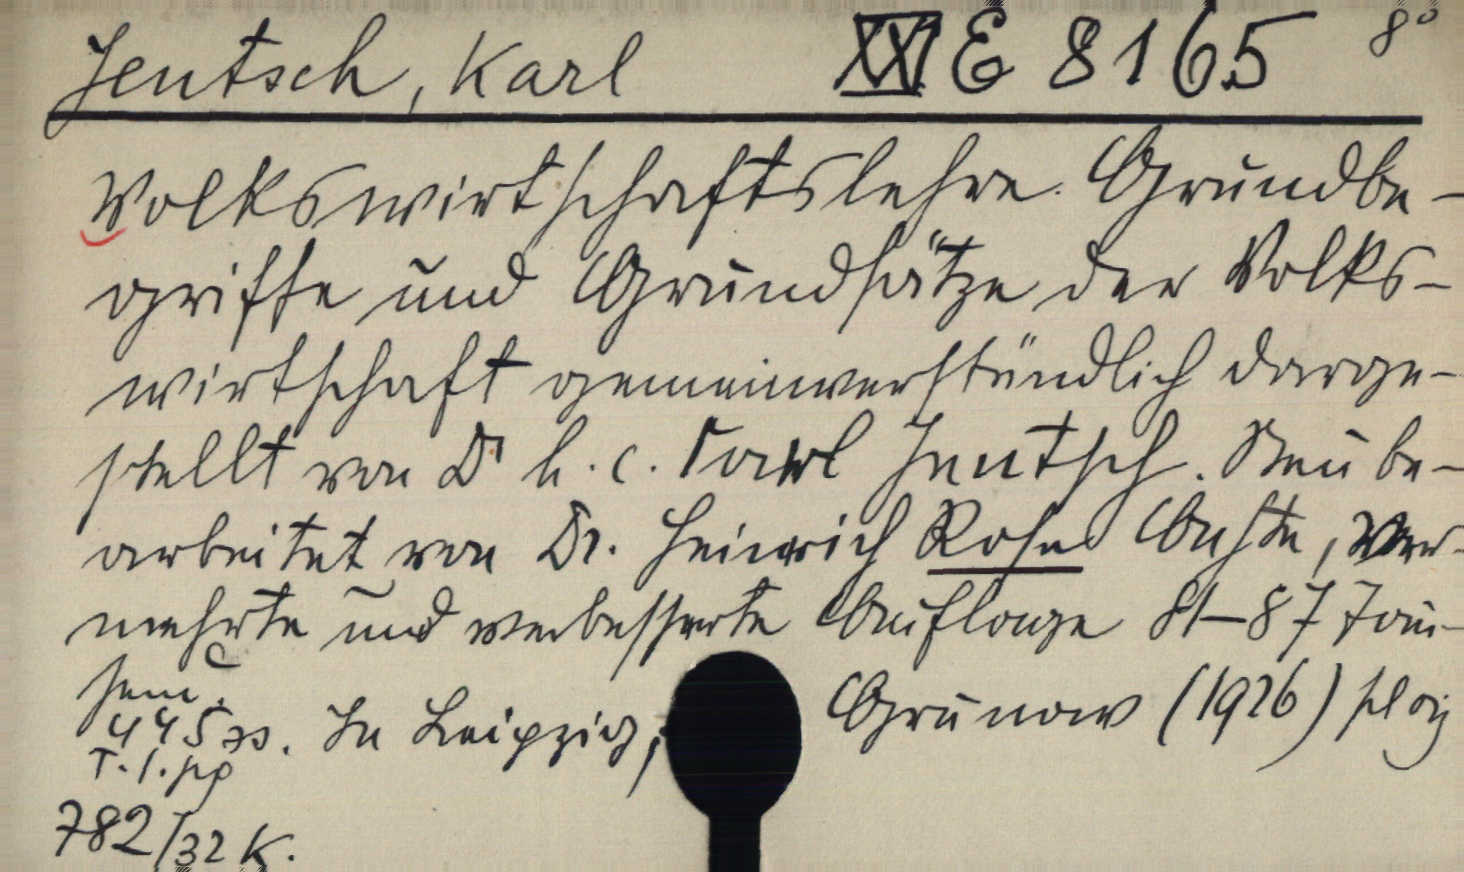 Jentsch, Karl XXI E 8165 8°
Volkswirtschaftslehre. Grundbe-
griffe und Grundsätze der Volks-
wirtschaft gemeinverständlich darge-
stellt von Dr h. c. Karl Jentsch. Neu be-
arbeitet von Dr. Heinrich Rose Achte, ver-
mehrte und verbesserte Auflage 81-87 Tau-
send.
445 In Leipzig, Grunow (1926)
T. I.
782/32 K.